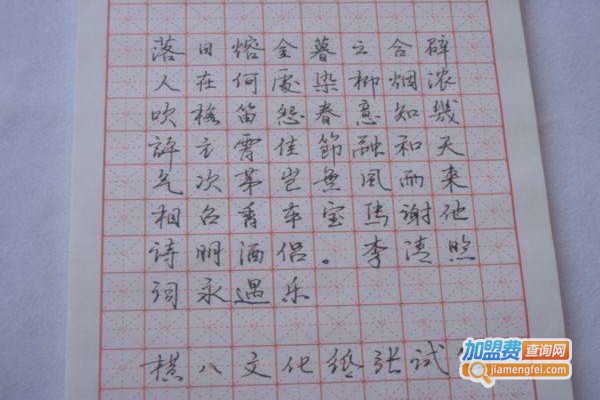 落日熔金暮云合
人在何處染柳烟浓
吹梅笛怨春意知幾
許元宵佳節融和天
气次第岂無風雨来
相召香车宝馬谢他
诗朋酒侣。李清照
词永遇乐
八文化纸张试
加盟费查询网
jiamengfei.com